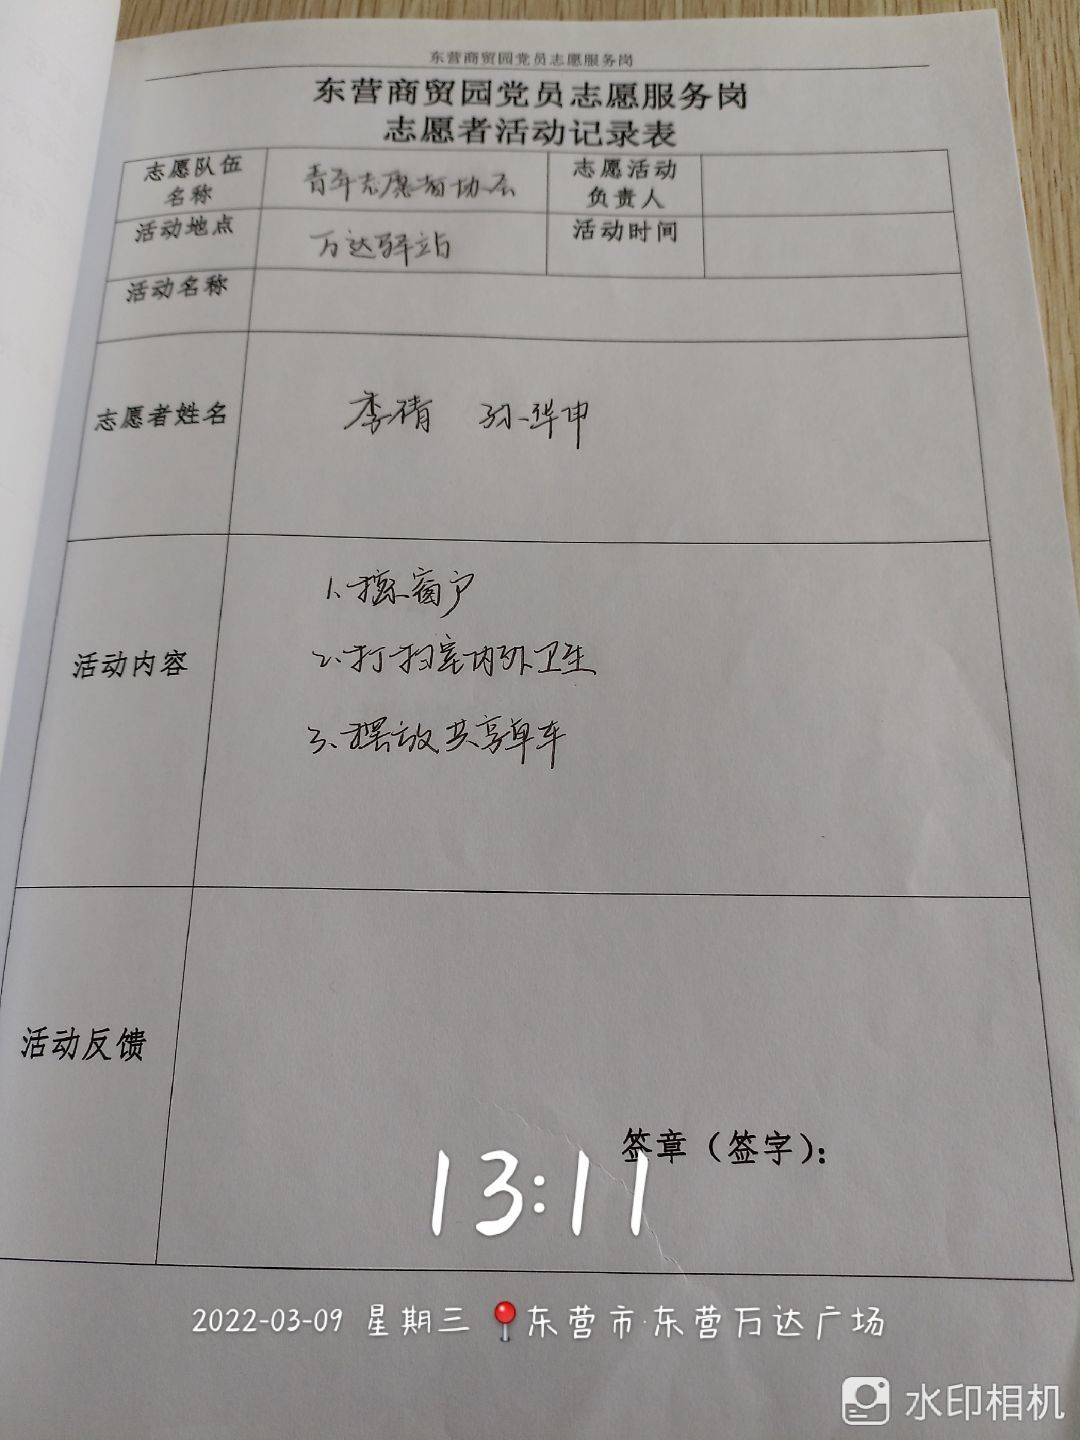 东营商贸园党员志愿服务岗
东营商贸园党员志愿服务岗
志愿者活动记录表
志愿队伍名称 青年志愿者协会 志愿活动负责人
活动地点 万达驿站 活动时间
活动名称
志愿者姓名 李倩 孙华申
活动内容
1、擦窗户
2、打扫室内外卫生
3、摆放共享单车
活动反馈
签章（签字）：
13:11
2022-03-09 星期三 东营市·东营万达广场
水印相机